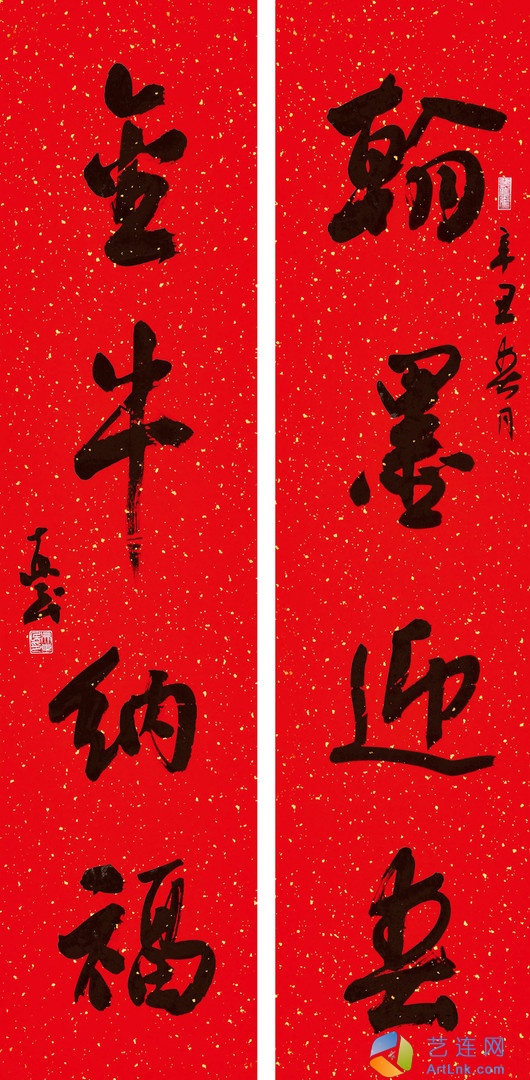 翰墨迎春
辛丑春月
金牛纳福
艺连网
ArtLnk.com